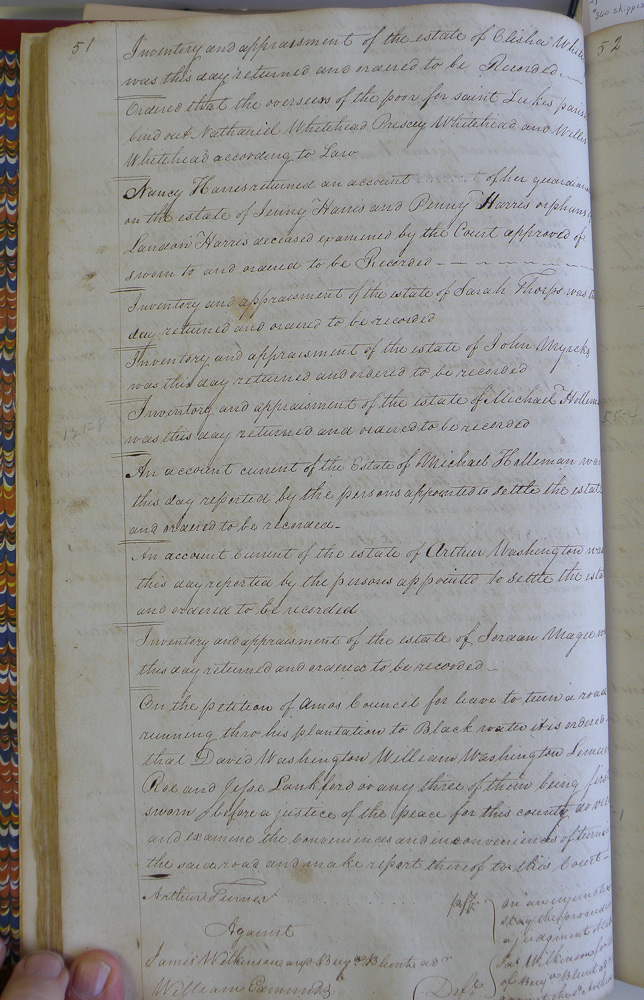 51
Inventory and appraisment of the estate of Elisha
was this day returned and ordered to be Recorded
Ordered that the overseers of the poor for saint Lukes parish
bind out Nathaniel Whitehead Prescey Whitehead and Willis
Whitehead according to Law
Nancy Harris returned an account of her guardian
on the estate of Jenny Harris and Penny Harris orphans
Landon Harris deceased examined by the Court approved of
sworn to and ordered to be Recorded
Inventory and appraisment of the estate of Sarah Thorps was
day returned and ordered to be recorded
Inventory and appraisment of the estate of John Myrick
was this day returned and ordered to be recorded
Inventory and appraisment of the estate of Michael Hollem
was this day returned and ordered to be recorded
An account current of the Estate of Michael Holleman was
this day reported by the persons appointed to settle the estate
and ordered to be recorded
An account Current of the estate of Arthur Washington was
this day reported by the persons appointed to settle the esta
and ordered to be recorded
Inventory and appraisment of the estate of Jordan Magee
this day returned and ordered to be recorded
On the petition of Amos Council for leave to turn a road
running thro his plantation to Black water it is ordered
that David Washington William Washington
Roe and Jesse Lankford or any three of them being first
sworn before a justice of the peace for this county do
and examine the Conveniences and inconveniences of turning
the said road and make report thereof to this Court
Arthur Turner
plff
on an injunc
stay the proceed
a judgment
Against
James Wilkinson and Benja Blunt adr
Jas Wilkinson
of Benja Blunt
William Edmunds
Defts
52